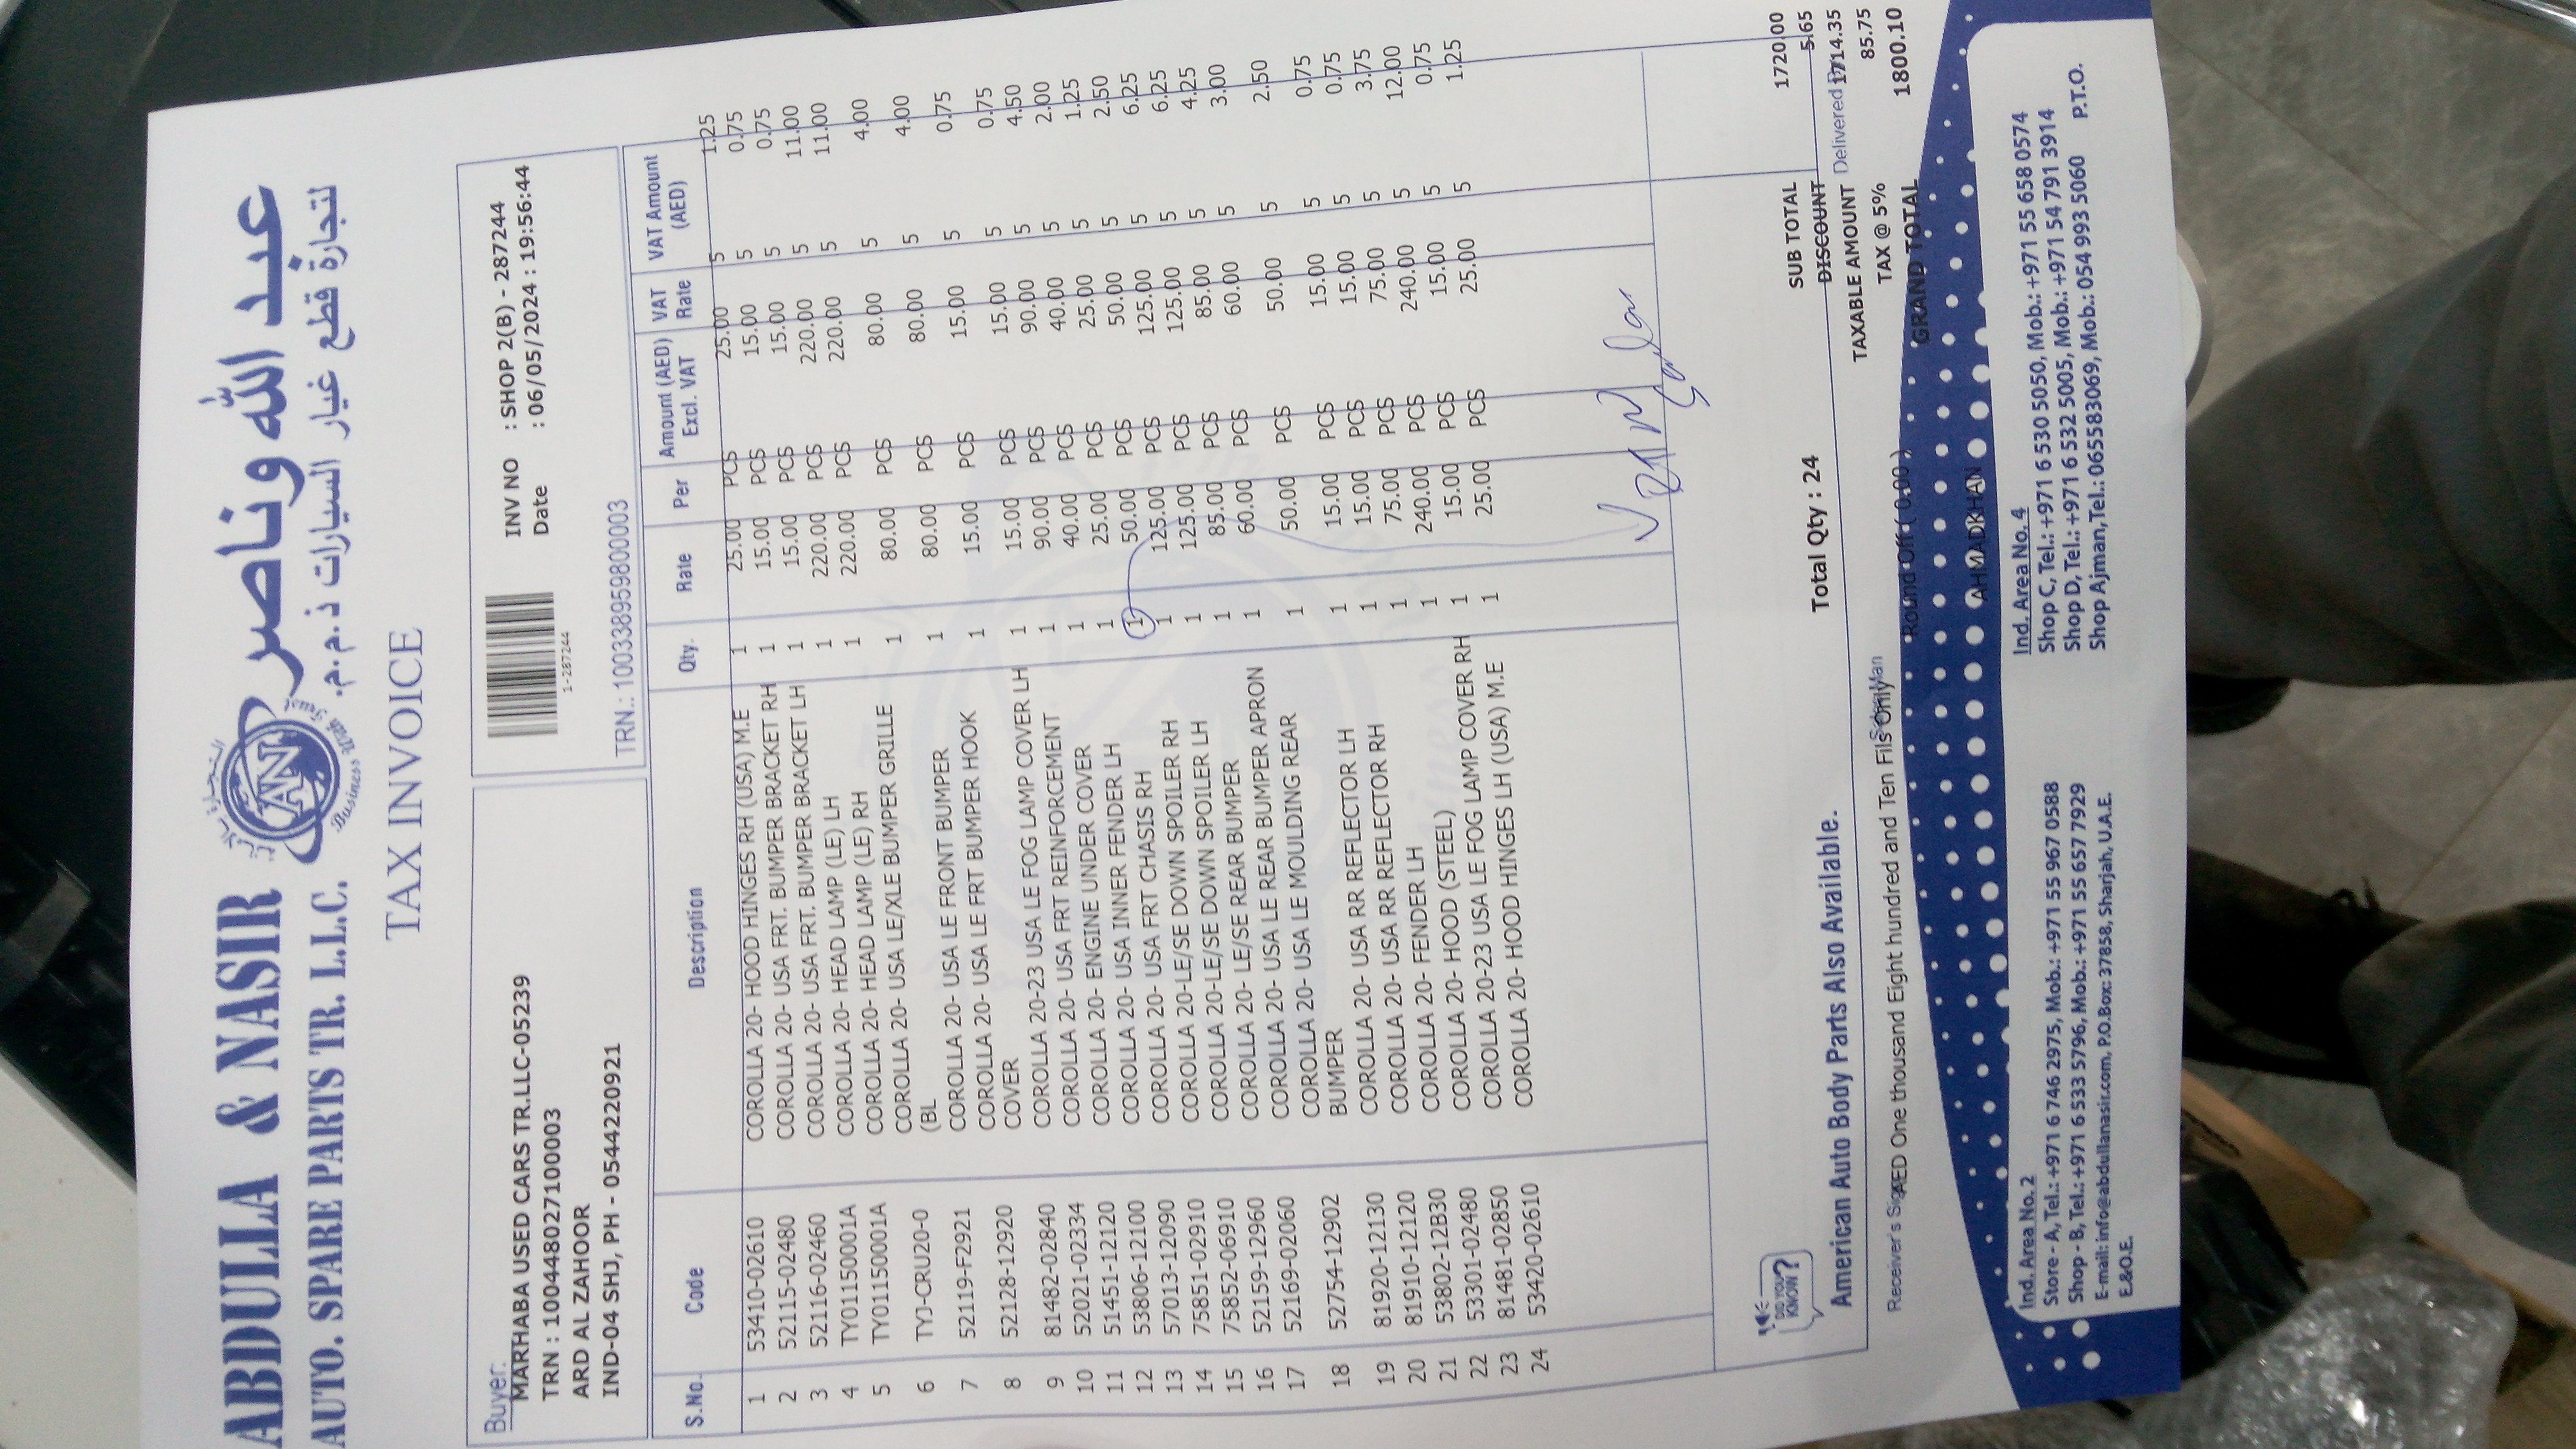 ABDULLA & NASIR
AUTO. SPARE PARTS TR. L.L.C.
AN
Business With Trust
عبد الله وناصر
لتجارة قطع غيار السيارات ذ.م.م.
TAX INVOICE
Buyer:
MARHABA USED CARS TR.LLC-05239
TRN : 100448027100003
ARD AL ZAHOOR
IND-04 SHJ, PH - 0544220921
1-287244
INV NO : SHOP 2(B) - 287244
Date : 06/05/2024 : 19:56:44
TRN.: 100338959800003
S.No. Code Description Qty. Rate Per Amount (AED) Excl. VAT VAT Rate VAT Amount (AED)
1 53410-02610 COROLLA 20- HOOD HINGES RH (USA) M.E 1 25.00 PCS 25.00 5 1.25
2 52115-02480 COROLLA 20- USA FRT. BUMPER BRACKET RH 1 15.00 PCS 15.00 5 0.75
3 52116-02460 COROLLA 20- USA FRT. BUMPER BRACKET LH 1 15.00 PCS 15.00 5 0.75
4 TY01150001A COROLLA 20- HEAD LAMP (LE) LH 1 220.00 PCS 220.00 5 11.00
5 TY01150001A COROLLA 20- HEAD LAMP (LE) RH 1 220.00 PCS 220.00 5 11.00
6 TYJ-CRU20-0 COROLLA 20- USA LE/XLE BUMPER GRILLE 1 80.00 PCS 80.00 5 4.00
(BL
7 52119-F2921 COROLLA 20- USA LE FRONT BUMPER 1 80.00 PCS 80.00 5 4.00
8 52128-12920 COROLLA 20- USA LE FRT BUMPER HOOK 1 15.00 PCS 15.00 5 0.75
COVER
9 81482-02840 COROLLA 20-23 USA LE FOG LAMP COVER LH 1 15.00 PCS 15.00 5 0.75
10 52021-02334 COROLLA 20- USA FRT REINFORCEMENT 1 90.00 PCS 90.00 5 4.50
11 51451-12120 COROLLA 20- ENGINE UNDER COVER 1 40.00 PCS 40.00 5 2.00
12 53806-12100 COROLLA 20- USA INNER FENDER LH 1 25.00 PCS 25.00 5 1.25
13 57013-12090 COROLLA 20- USA FRT CHASIS RH 1 50.00 PCS 50.00 5 2.50
14 75851-02910 COROLLA 20-LE/SE DOWN SPOILER RH 1 125.00 PCS 125.00 5 6.25
15 75852-06910 COROLLA 20-LE/SE DOWN SPOILER LH 1 125.00 PCS 125.00 5 6.25
16 52159-12960 COROLLA 20- LE/SE REAR BUMPER 1 85.00 PCS 85.00 5 4.25
17 52169-02060 COROLLA 20- USA LE REAR BUMPER APRON 1 60.00 PCS 60.00 5 3.00
18 52754-12902 COROLLA 20- USA LE MOULDING REAR 1 50.00 PCS 50.00 5 2.50
BUMPER
19 81920-12130 COROLLA 20- USA RR REFLECTOR LH 1 15.00 PCS 15.00 5 0.75
20 81910-12120 COROLLA 20- USA RR REFLECTOR RH 1 15.00 PCS 15.00 5 0.75
21 53802-12B30 COROLLA 20- FENDER LH 1 75.00 PCS 75.00 5 3.75
22 53301-02480 COROLLA 20- HOOD (STEEL) 1 240.00 PCS 240.00 5 12.00
23 81481-02850 COROLLA 20-23 USA LE FOG LAMP COVER RH 1 15.00 PCS 15.00 5 0.75
24 53420-02610 COROLLA 20- HOOD HINGES LH (USA) M.E 1 25.00 PCS 25.00 5 1.25
DID YOU KNOW?
American Auto Body Parts Also Available.
Total Qty : 24
SUB TOTAL 1720.00
DISCOUNT 5.65
TAXABLE AMOUNT 1714.35
Delivered
TAX @ 5% 85.75
GRAND TOTAL 1800.10
Receiver's
AED One thousand Eight hundred and Ten Fils Only
Round Off ( 0.00 )
AHMADKHAN
Ind. Area No. 2
Store - A, Tel.: +971 6 746 2975, Mob.: +971 55 967 0588
Shop - B, Tel.: +971 6 533 5796, Mob.: +971 55 657 7929
E-mail: info@abdullanasir.com, P.O.Box: 37858, Sharjah, U.A.E.
E.&O.E.
Ind. Area No. 4
Shop C, Tel.: +971 6 530 5050, Mob.: +971 55 658 0574
Shop D, Tel.: +971 6 532 5005, Mob.: +971 54 791 3914
Shop Ajman, Tel.: 065583069, Mob.: 054 993 5060
P.T.O.